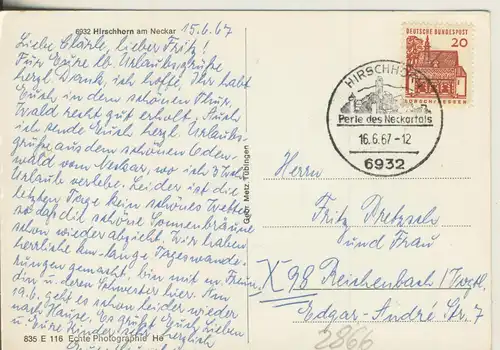 6932 Hirschhorn am Neckar
15.6.67
Liebe Charle, lieber Fritz!
Für Eure lb. Urlaubsgrüße
herzl. Dank, ich hoffe, Ihr habt
Euch in dem schönen Thür.
Wald recht gut erholt. Auch
ich sende Euch herzl. Urlaubs-
grüße aus dem schönen Oden-
wald vom Neckar, wo ich 3 Woch.
Urlaub verlebe. Leider ist die
letzten Tage kein schönes Wetter
so daß die schöne Sonnenbräune
schon wieder abgeht. Wir haben
herrliche km-lange Tageswande-
rungen gemacht. bin mit m. Freun-
din u. deren Schwester hier. Am
19.6. geht es schon leider wieder
nach Hause. Es grüßt Euch Lieben
u. Eure Kinder recht herzlich
835 E 116 Echte Photographie He
Gebr. Metz Tübingen
DEUTSCHE BUNDESPOST
20
LORSCH/HESSEN
HIRSCHHORN
Perle des Neckartals
16.6.67-12
6932
Herrn
Fritz Pretzsch
und Frau
X 98 Reichenbach/Vogtl.
Edgar-André Str. 7
2866